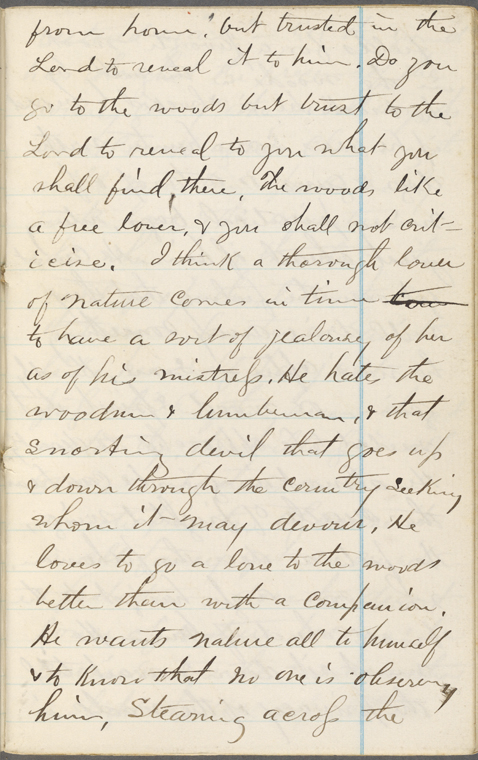 from home, but trusted in the
Lord to reveal it to him. Do you
go to the woods but trust to the
Lord to reveal to you what you
shall find there. The woods like
a free lover, & you shall not crit-
icise. I think a thorough lover
of nature comes in time
to have a sort of jealousy of her
as of his mistress. He hates the
woodman & lumberman, & that
snorting devil that goes up
& down through the country seeking
whom it may devour. He
loves to go a lone to the woods
better than with a companion.
He wants nature all to himself
& to know that no one is observing
him, Stearing across the